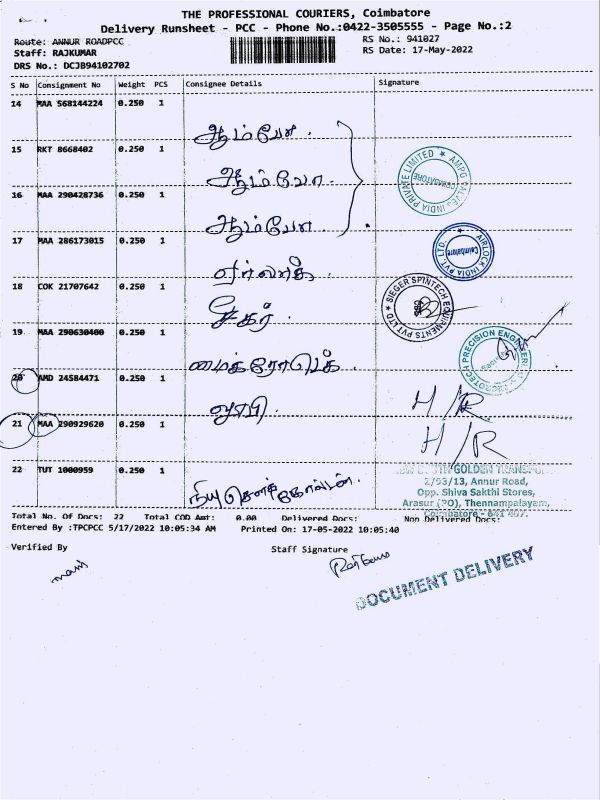 THE PROFESSIONAL COURIERS, Coimbatore
Delivery Runsheet - PCC - Phone No.:0422-3505555 - Page No.:2
Route: ANNUR ROADPCC
RS No.: 941027
Staff: RAJKUMAR
RS Date: 17-May-2022
DRS No.: DCJB94102702
S No Consignment No Weight PCS Consignee Details Signature
14 MAA 568144224 0.250 1
ஆம்போ.
15 RKT 8668402 0.250 1
ஆம்போ.
16 MAA 290428736 0.250 1
AMPO VALVES INDIA PRIVATE LIMITED ★ COIMBATORE
ஆம்போ.
17 MAA 286173015 0.250 1
AIRLOCK INDIA PVT. LTD. Coimbatore
ஏர்லாக்
18 COK 21707642 0.250 1
SIEGER SPINTECH EQUIPMENTS PVT LTD ★
சீகர்.
19 MAA 290630400 0.250 1
PRECISION
மைக்ரோடெக்
20 AMD 24584471 0.250 1
H/R
21 MAA 290929620 0.250 1
H/R
22 TUT 1000959 0.250 1
GOLDEN
2/53/13, Annur Road,
Opp. Shiva Sakthi Stores,
Arasur (PO), Thennampalayam,
Coimbatore - 641 407.
Total No. Of Docs: 22 Total COD Amt: 0.00 Delivered Docs: Non Delivered Docs:
Entered By :TPCPCC 5/17/2022 10:05:34 AM Printed On: 17-05-2022 10:05:40
Verified By Staff Signature
DOCUMENT DELIVERY